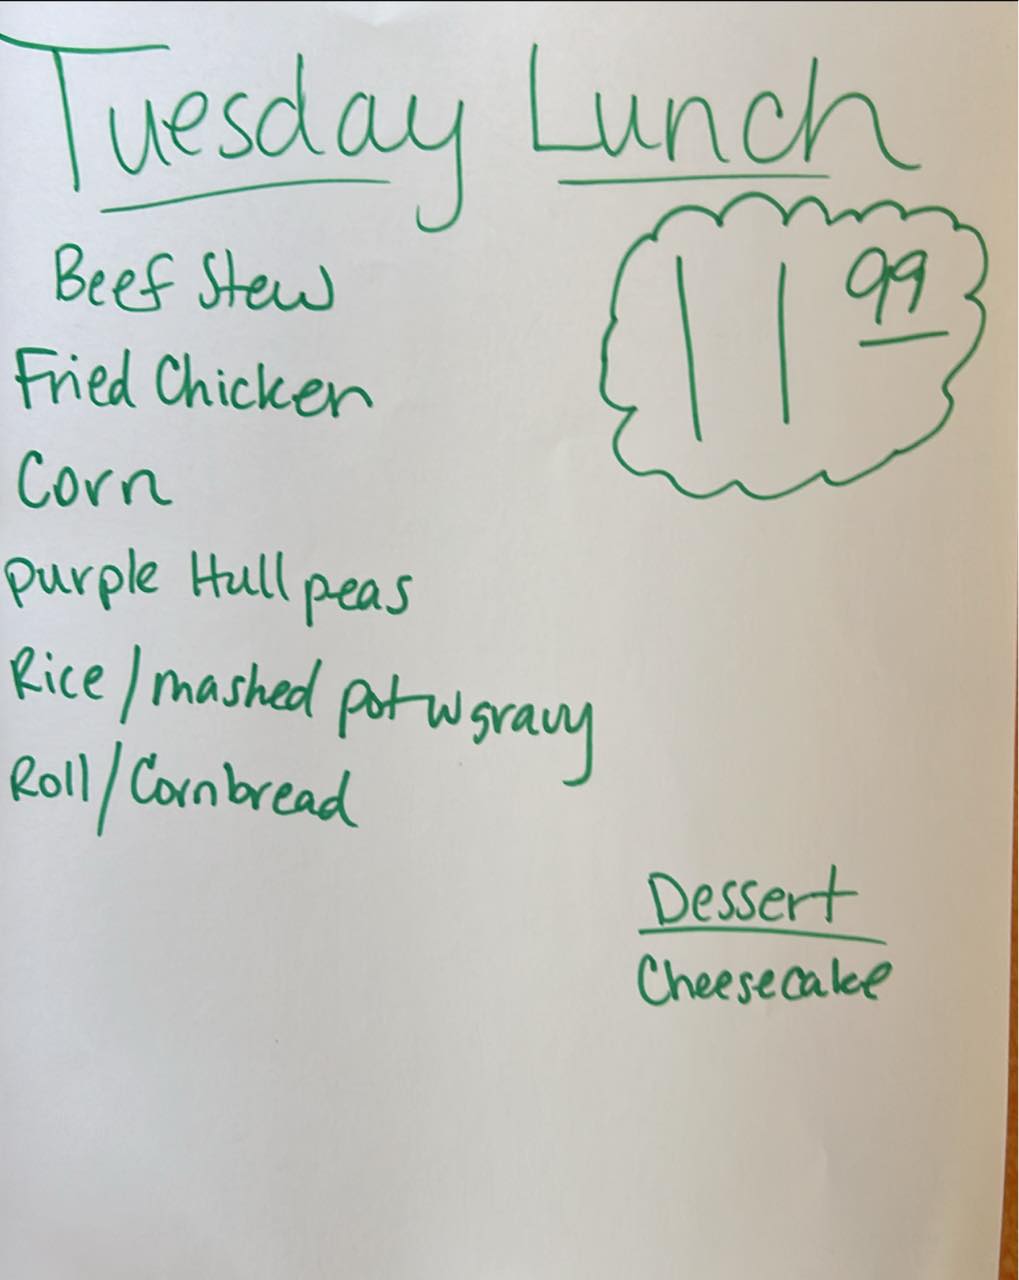 Tuesday Lunch
11 99
Beef Stew
Fried Chicken
Corn
purple Hull peas
Rice / mashed pot w gravy
Roll / Cornbread
Dessert
Cheesecake